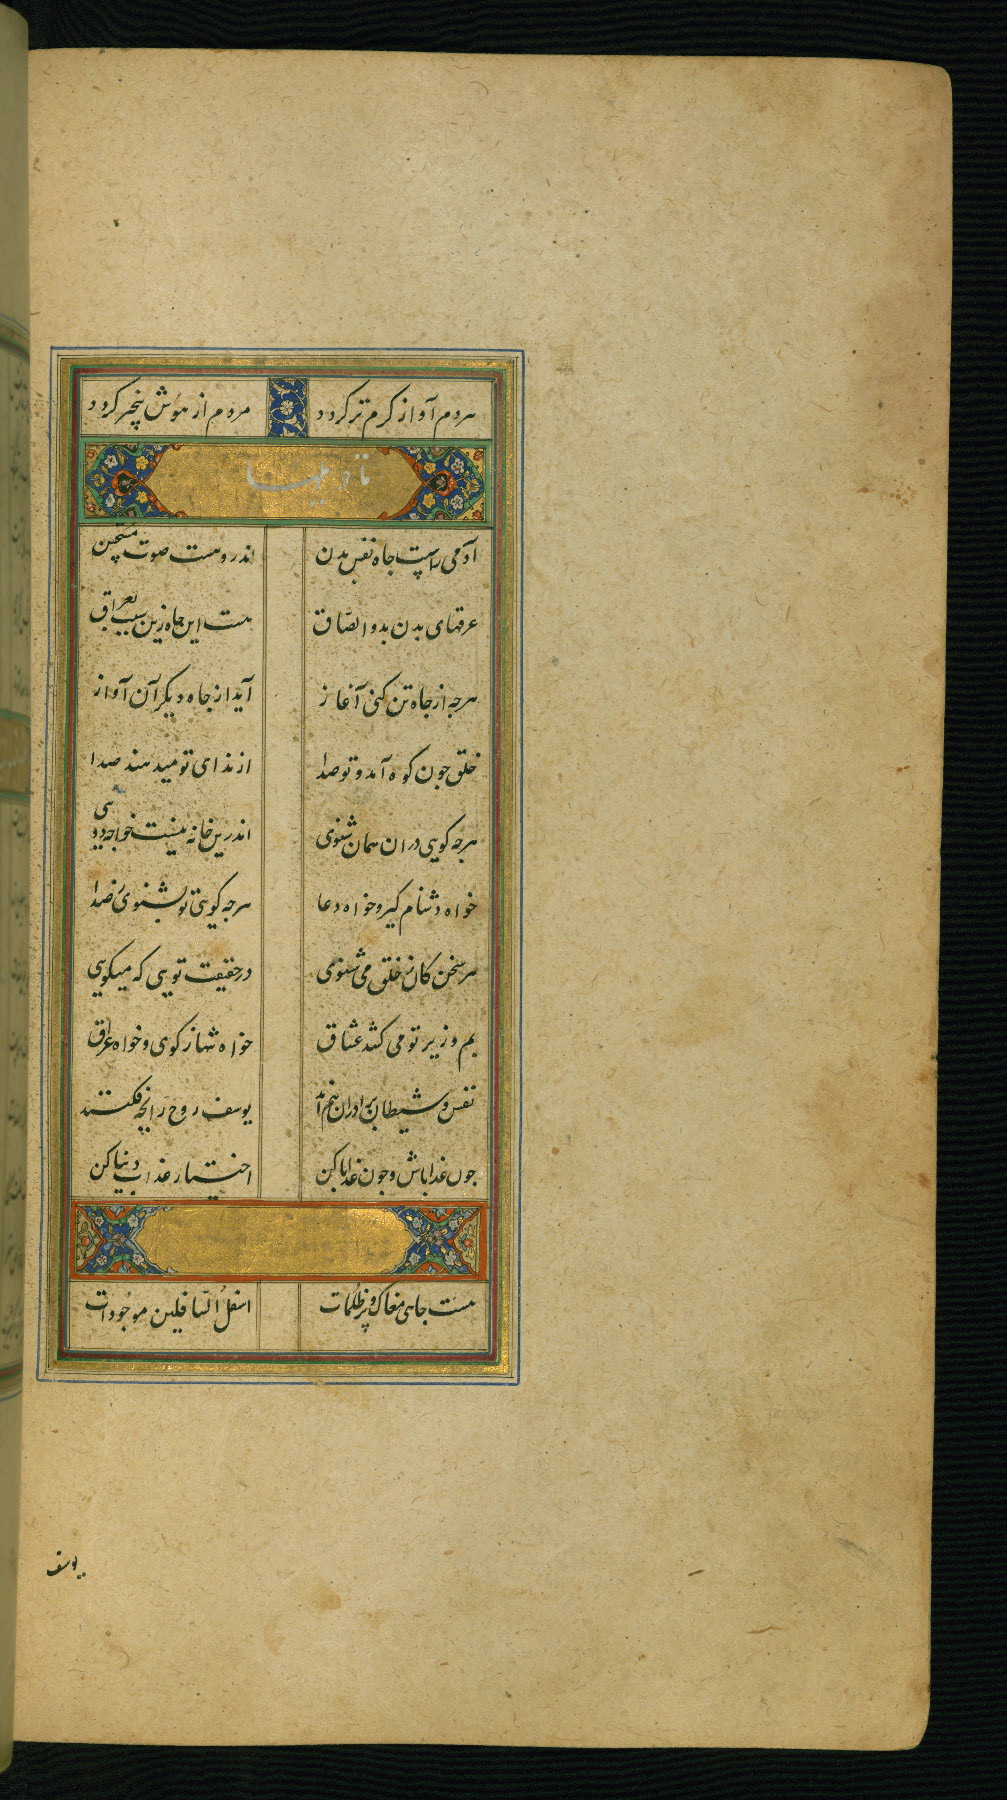 هردم آواز گرم تر گردد مردم از هوش بیخبر گردد
آدمی راست جاه نفس بدن اندروهست صوت
عرقهای بدن بدو الصاق هست این جاه زین سبب بعراق
هرجه از جاه تن کنی آغاز آید از جاه دیکر آن آواز
خلق جون کوه آمد و تو صدا از ندای تو میدهند صدا
هرجه کویی دران همان شنوی اندرین خانه نیست خواجه دویی
خواه دشنام کیر و خواه دعا هرجه کویی تو بشنوی
هر سخن کان ز خلق می شنوی درحقیقت تویی که میکویی
بم و زیر تو می کشد عشاق خواه شهناز کوی و خواه عراق
نفس و شیطان برادران یوسف روح را بچه فکنند
جون خدا باش و جون خدایا کن اختیار عذاب دنیا کن
هست جاهی مغاک و پر ظلمات اسفل السافلین موجودات
یوسف